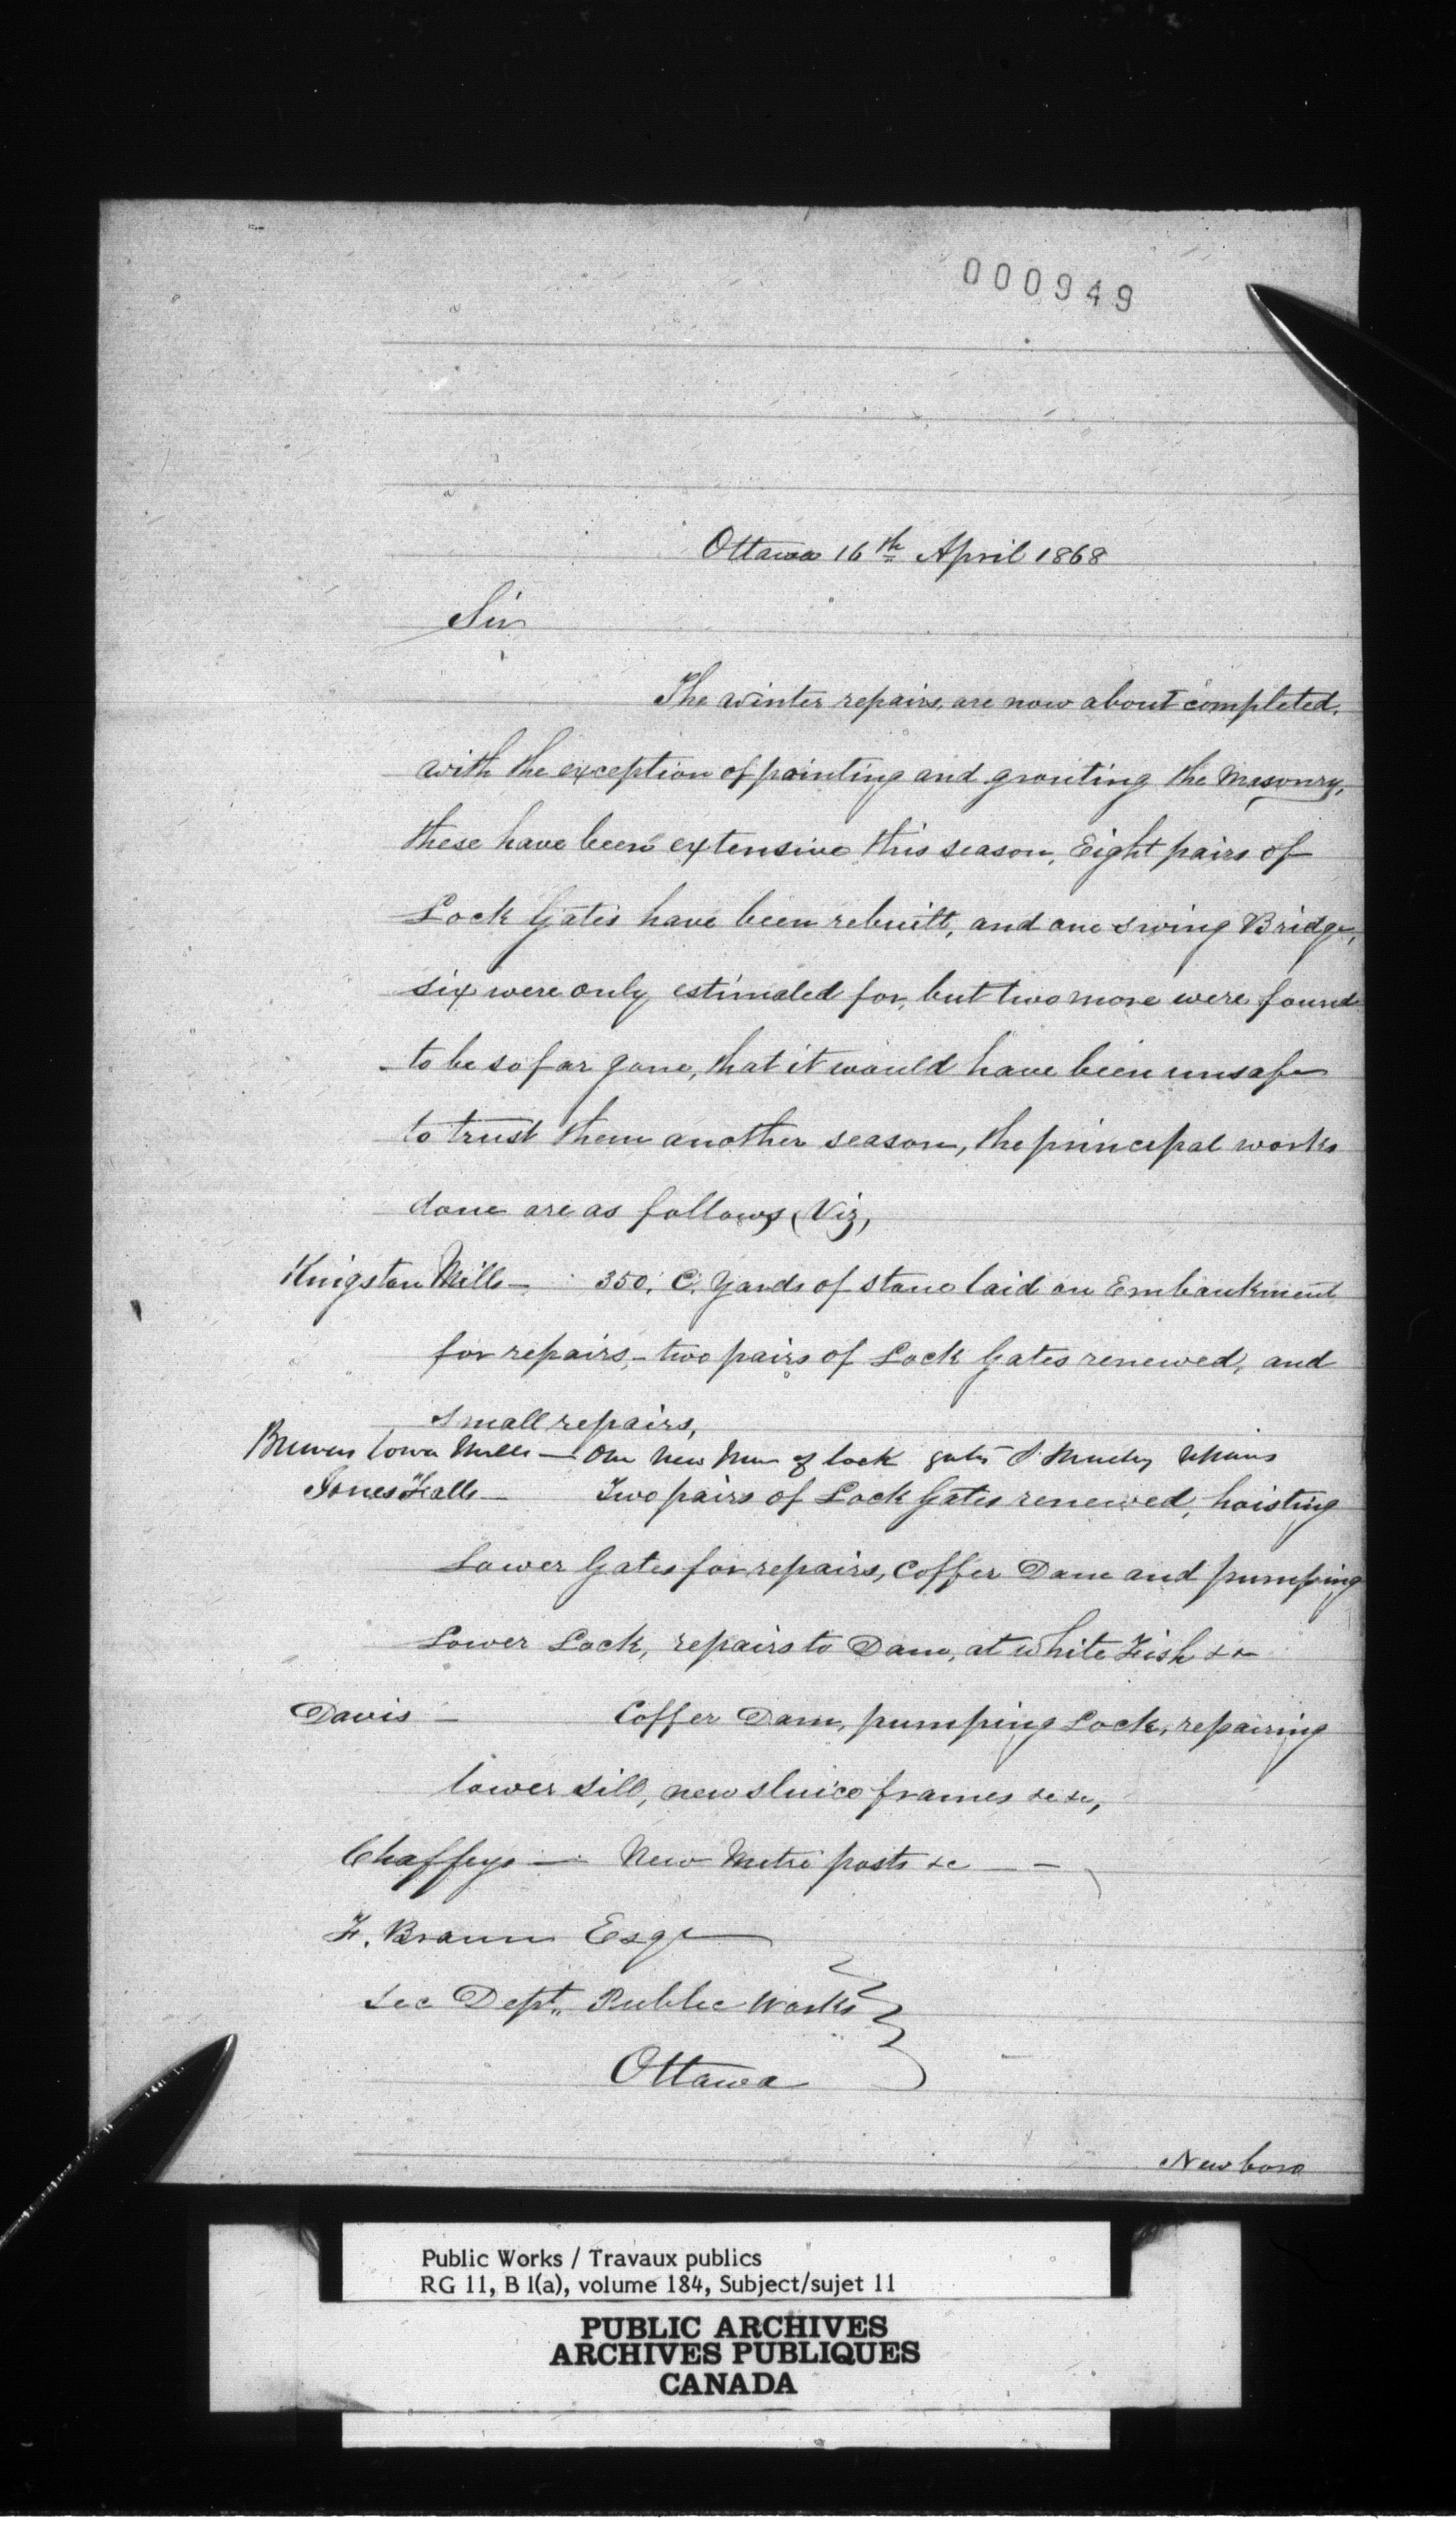 000949
Ottawa 16th April 1868
Sir
The winter repairs are now about completed,
with the exception of pointing and grouting the Masonry,
these have been extensive this season, Eight pairs of
Lock Gates have been rebuilt, and one swing Bridge,
six were only estimated for, but two more were found
to be so far gone, that it would have been unsafe
to trust them another season, the principal works
done are as follows, Viz,
Kingston Mills — 350. C. Yards of stone laid on Embankment
for repairs, - two pairs of Lock Gates renewed, and
small repairs,
Brewers Lower Mills — One New of lock gates & Sundry repairs
Jones Falls — Two pairs of Lock Gates renewed, hoisting
Lower Gates for repairs, Coffer Dam and pumping
Lower Lock, repairs to Dam, at White Fish &c
Davis — Coffer Dam, pumping Lock, repairing
lower sill, new sluice frames &c &c,
Chaffeys — New Mitre posts &c — —
F. Braun Esqr
Sec Dept. Public Works
Ottawa
Newboro
Public Works / Travaux publics
RG 11, B 1(a), volume 184, Subject/sujet 11
PUBLIC ARCHIVES
ARCHIVES PUBLIQUES
CANADA